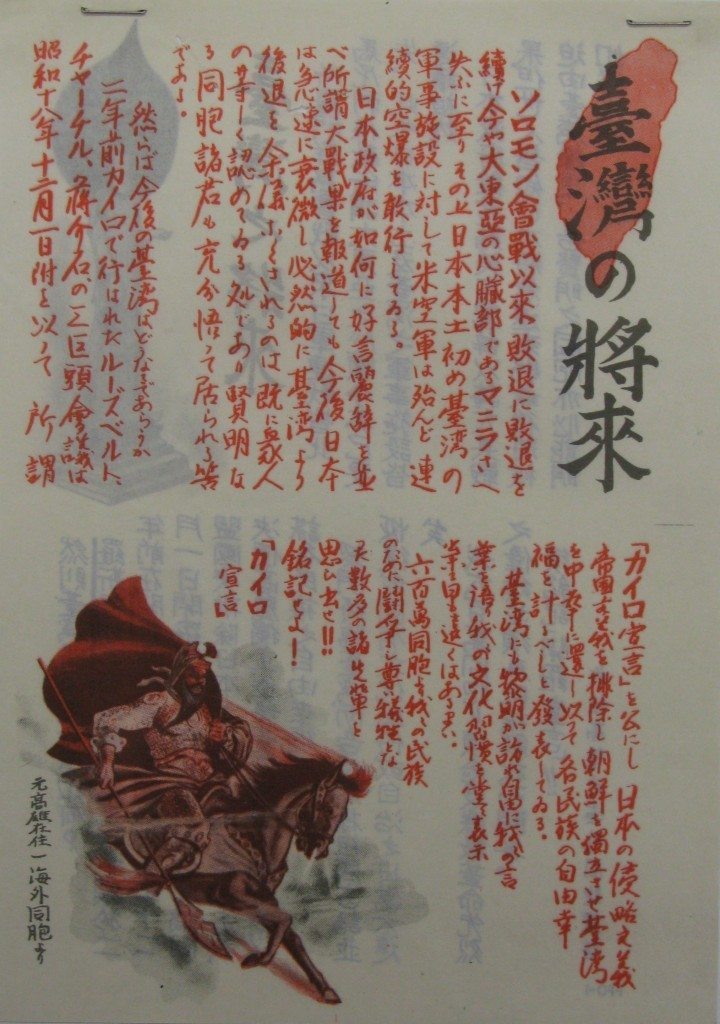 臺灣の將來
ソロモン會戰以來敗退に敗退を
續け今や大東亞の心臓部であるマニラさへ
失ふに至りその上日本本土初め臺灣の
軍事施設に対して米空軍は殆んど連
續的空爆を敢行してゐる。
日本政府が如何に好言麗辞を並
べ所謂大戰果を報道しても今後日本
は急速に衰微し必然的に臺湾より
後退を余儀なくされるのは既に衆人
の等しく認めてゐる処であり賢明な
る同胞諸君も充分悟って居られる筈
である。
然らば今後の臺湾はどうなるであらうか
二年前カイロで行はれたルーズベルト、
チャーチル、蔣介石の三巨頭會議は
昭和十八年十二月一日附を以って所謂
「カイロ宣言」を公にし日本の侵略主義
帝國主義を排除し朝鮮を獨立させ臺湾
を中華に置還し以って各民族の自由幸
福を計るべしと發表してゐる。
臺湾にも黎明が訪れ自由に我の言
葉を語り我の文化習慣を堂々表示
出来る日も遠くはあるまい。
六百萬同胞よ我々の民族
のために闘争し尊い犠牲となった
数多の諸先輩を
思ひ出せ!!
銘記せよ!
「カイロ
宣言」
元高雄在住一海外同胞より